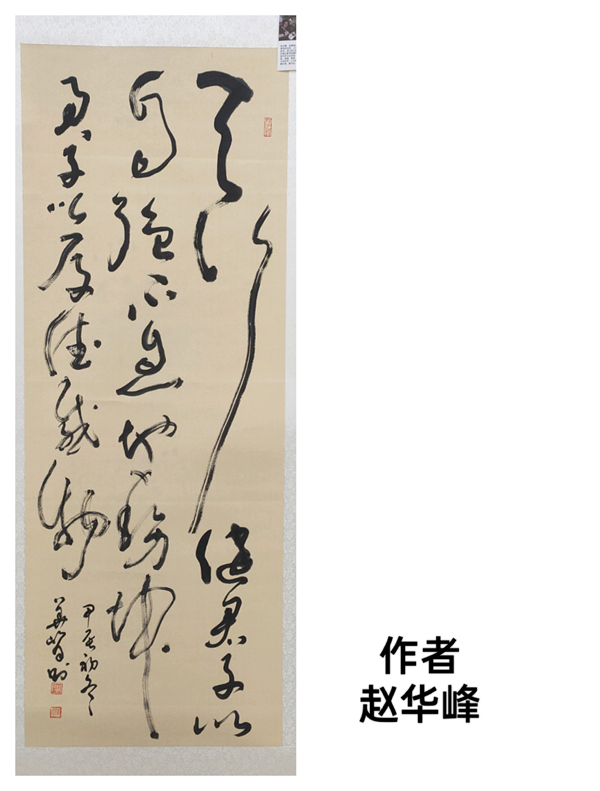 天行健君子以
自强不息地势坤
君子以厚德载物
甲辰初冬
华峰书
作者
赵华峰